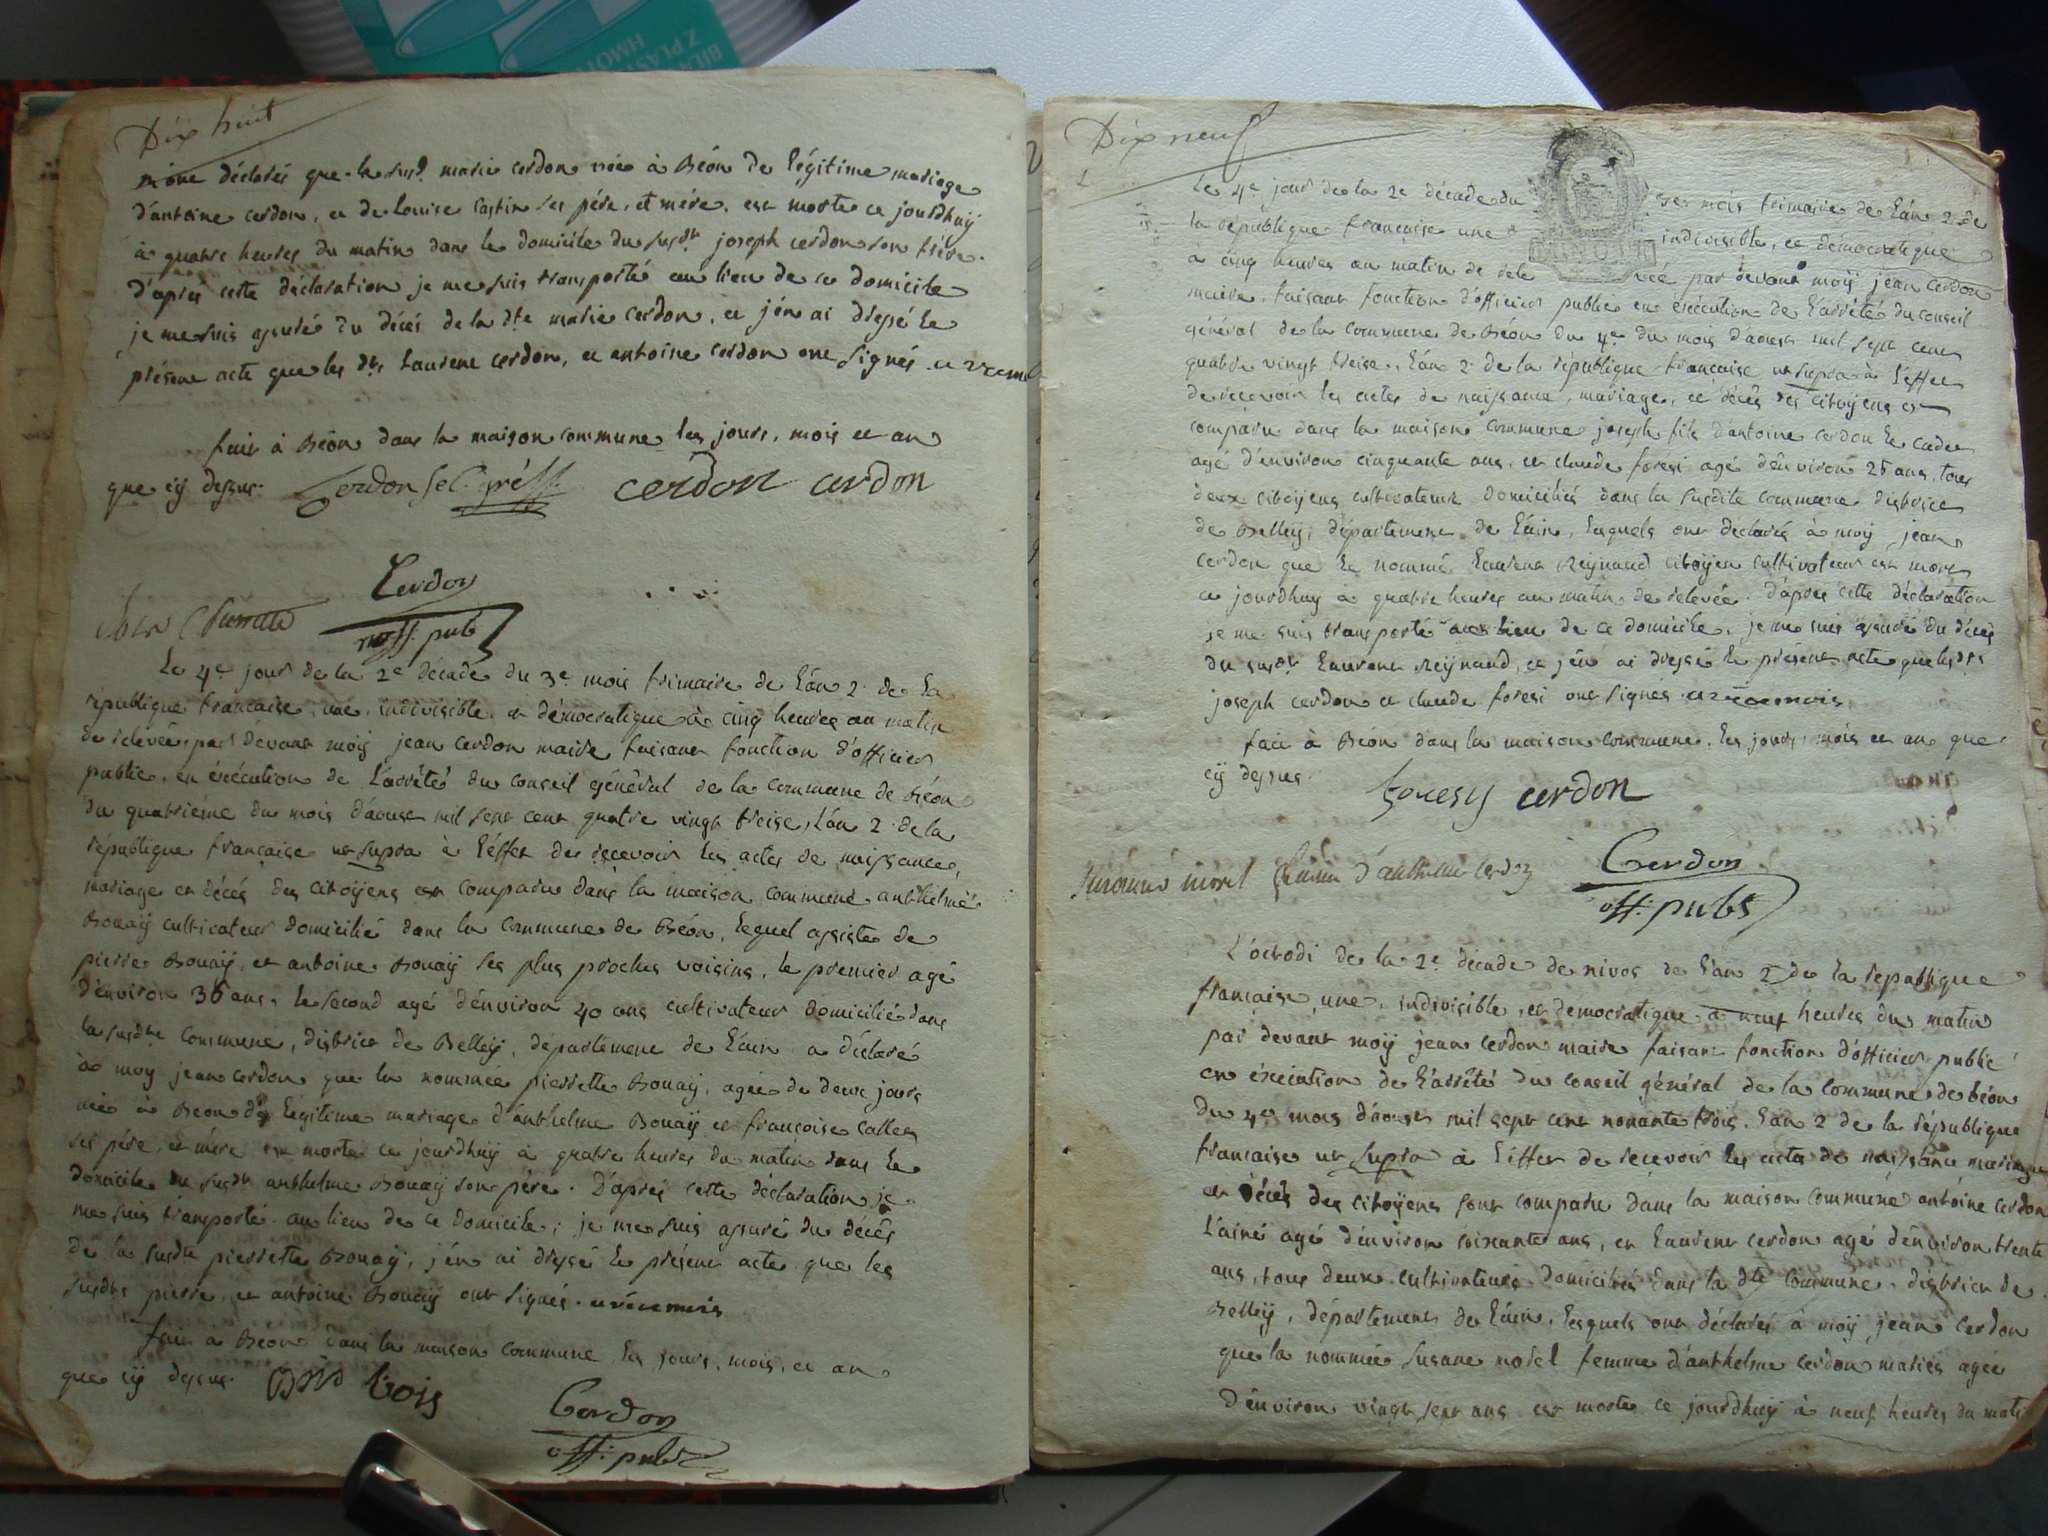 Dix huit
m'ont déclarés que la susd. marie cerdon née à Béon de légitime mariage
d'antoine cerdon, et de louise castin ses pére, et mére, est morte ce jourdhuÿ
à quatre heures du matin dans le domicile du susdt joseph cerdon son frére.
D'aprés cette déclaration je me suis transporté au lieu de ce domicile
je me suis assuré du décés de la dte marie cerdon, et j'én ai dréssé le
présent acte que les dts Laurent cerdon, et antoine cerdon ont signés
fait à Béon dans la maison commune les jours, mois et an
que cÿ dessus. Cerdon cerdon cerdon
Cerdon
off. pub
Le 4e jour de la 2e décade du 3e mois frimaire de l'án 2 de la
république francaise, une, indivisible, et démocratique à cinq heures au matin
de relevée, par devant moÿ jean cerdon maire faisant fonction d'officier
public, en éxécution de l'arrété du conseil général de la commune de Béon
du quatriéme du mois d'aoust mil sept cent quatre vingt treise, l'án 2 de la
république francaise ut supra à l'éffet de recevoir les actes de naissance,
mariage et décés des citoÿens est comparu dans la maison commune anthelme
Bouaÿ cultivateur domicilié dans la commune de Béon, lequel assisté de
pierre Bouaÿ, et antoine Bouaÿ ses plus proches voisins, le premier agé
d'énviron 36 ans, le second agé d'énviron 40 ans cultivateur domicilié dans
la susdte commune, district de Belleÿ, département de l'áin a déclaré
à moy jean cerdon que la nommée pierrette Bouaÿ, agée de deux jours
née à Béon de légitime mariage d'anthelme Bouaÿ et francoise callet
ses pére, et mére est morte ce jourdhuÿ à quatre heures du matin dans le
domicile du susdt anthelme Bouaÿ son pére. D'aprés cette déclaration je
me suis transporté au lieu de ce domicile; je me suis assuré du décés
de la susdte pierrette Bouaÿ, j'én ai dréssé le présent acte que les
susdts pierre, et antoine Bouaÿ ont signés
fait à Béon dans la maison commune les jours, mois, et an
que cÿ dessus.
Cerdon
off. pub
Dix neuf
Le 4e jour de la 2e décade du 3e mois frimaire de l'án 2 de
la république francaise une indivisible, et démocratique
à cinq heures au matin de relevée par devant moÿ jean cerdon
maire, faisant fonction d'officier public en éxécution de l'arrété du conseil
général de la commune de Béon du 4e du mois d'aoust mil sept cent
quatre vingt treise, l'án 2 de la république francaise ut supra à l'éffet
de recevoir les actes de naissance, mariage, et décés des citoÿens est
comparu dans la maison commune joseph fils d'antoine cerdon le cadet
agé d'énviron cinquante ans, et claude foresi agé d'énviron 25 ans, tous
deux citoÿens cultivateurs domiciliés dans la susdite commune district
de Belleÿ, département de l'áin, lesquels ont déclarés à moÿ jean
cerdon que le nommé laurent Reÿnaud citoÿen cultivateur est mort
ce jourdhuy à quatre heures au matin de relevée. D'aprés cette déclaration
je me suis transporté au lieu de ce domicile, je me suis assuré du décés
du susdt laurent Reÿnaud, et j'én ai dréssé le présent acte que les dts
joseph cerdon et claude foresi ont signés
fait à Béon dans la maison commune, les jours, mois et an que
cÿ dessus. foresy cerdon
femme d'anthelme cerdon
Cerdon
off. pub
L'octodi de la 2e décade de nivos de l'an 2 de la république
francaise, une, indivisible, et democratique à neuf heures du matin
par devant moÿ jean cerdon maire faisant fonction d'officier public
en éxécution de l'arrêté du conseil général de la commune de béon
du 4e mois d'aoust mil sept cent nonante trois, l'an 2 de la république
francaise ut supra à l'éffet de recevoir les actes de naissance mariage
et décés des citoÿens sont comparu dans la maison commune antoine cerdon
l'ainé agé d'énviron soixante ans, et laurent cerdon agé d'énviron trente
ans, tous deux cultivateurs domiciliés dans la dte commune, district de
Belleÿ, département de l'áin, lesquels ont déclarés à moÿ jean cerdon
que la nommée Susane morel femme d'anthelme cerdon mariés agée
d'énviron vingt sept ans est morte ce jourdhuÿ à neuf heures du matin